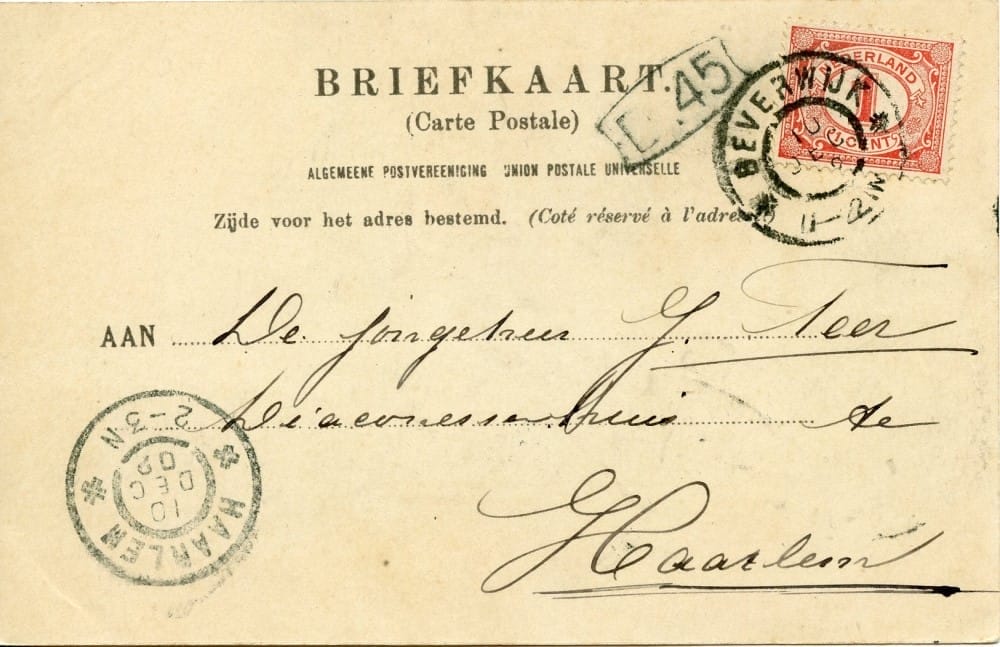 BRIEFKAART.
(Carte Postale)
ALGEMEENE POSTVEREENIGING UNION POSTALE UNIVERSELLE
Zijde voor het adres bestemd. (Coté réservé à l'adresse)
45
NEDERLAND
1
CENT
BEVERWIJK
AAN De Jongeheer G. Teer
Diaconessenhuis te
Haarlem
HAARLEM
10
DEC
02
2-3 N